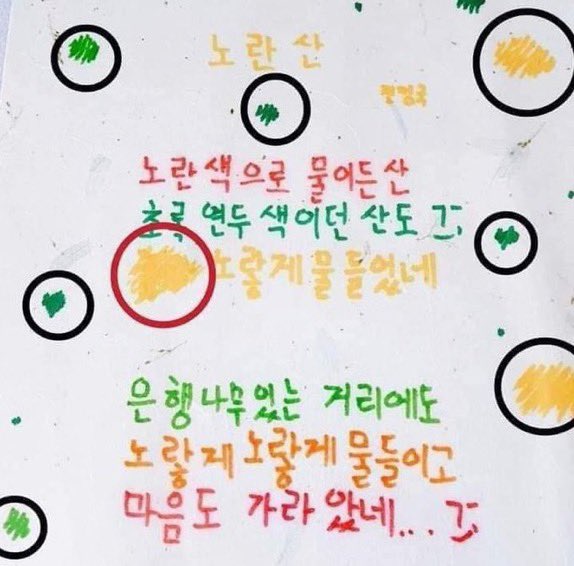 노란산
노란색으로 물이든산
초록 연두색이던 산도
노랗게물들었네
은행나무있는 거리에도
노랗게 노랗게 물들이고
마음도 가라 았네...